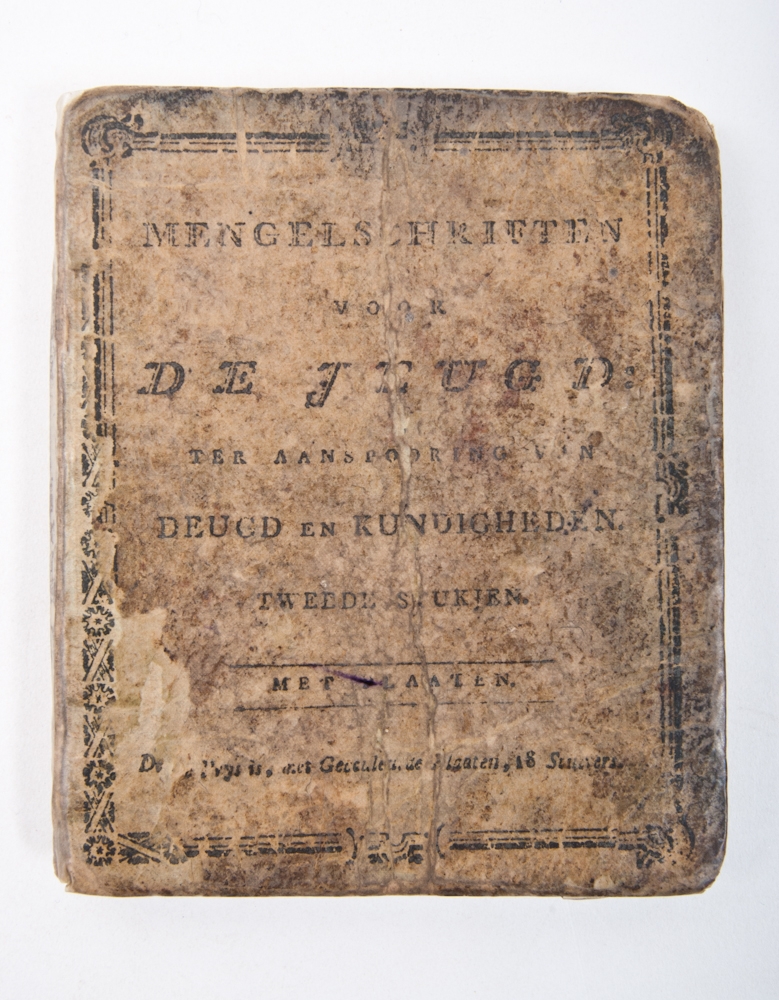 MENGELSCHRIFTEN
VOOR
DE JEUGD:
TER AANSPOORING VAN
DEUGD EN KUNDIGHEDEN.
TWEEDE STUKJEN.
MET PLAATEN.
De Prys is, met Gecouleurde Plaaten, 18 Stuivers.